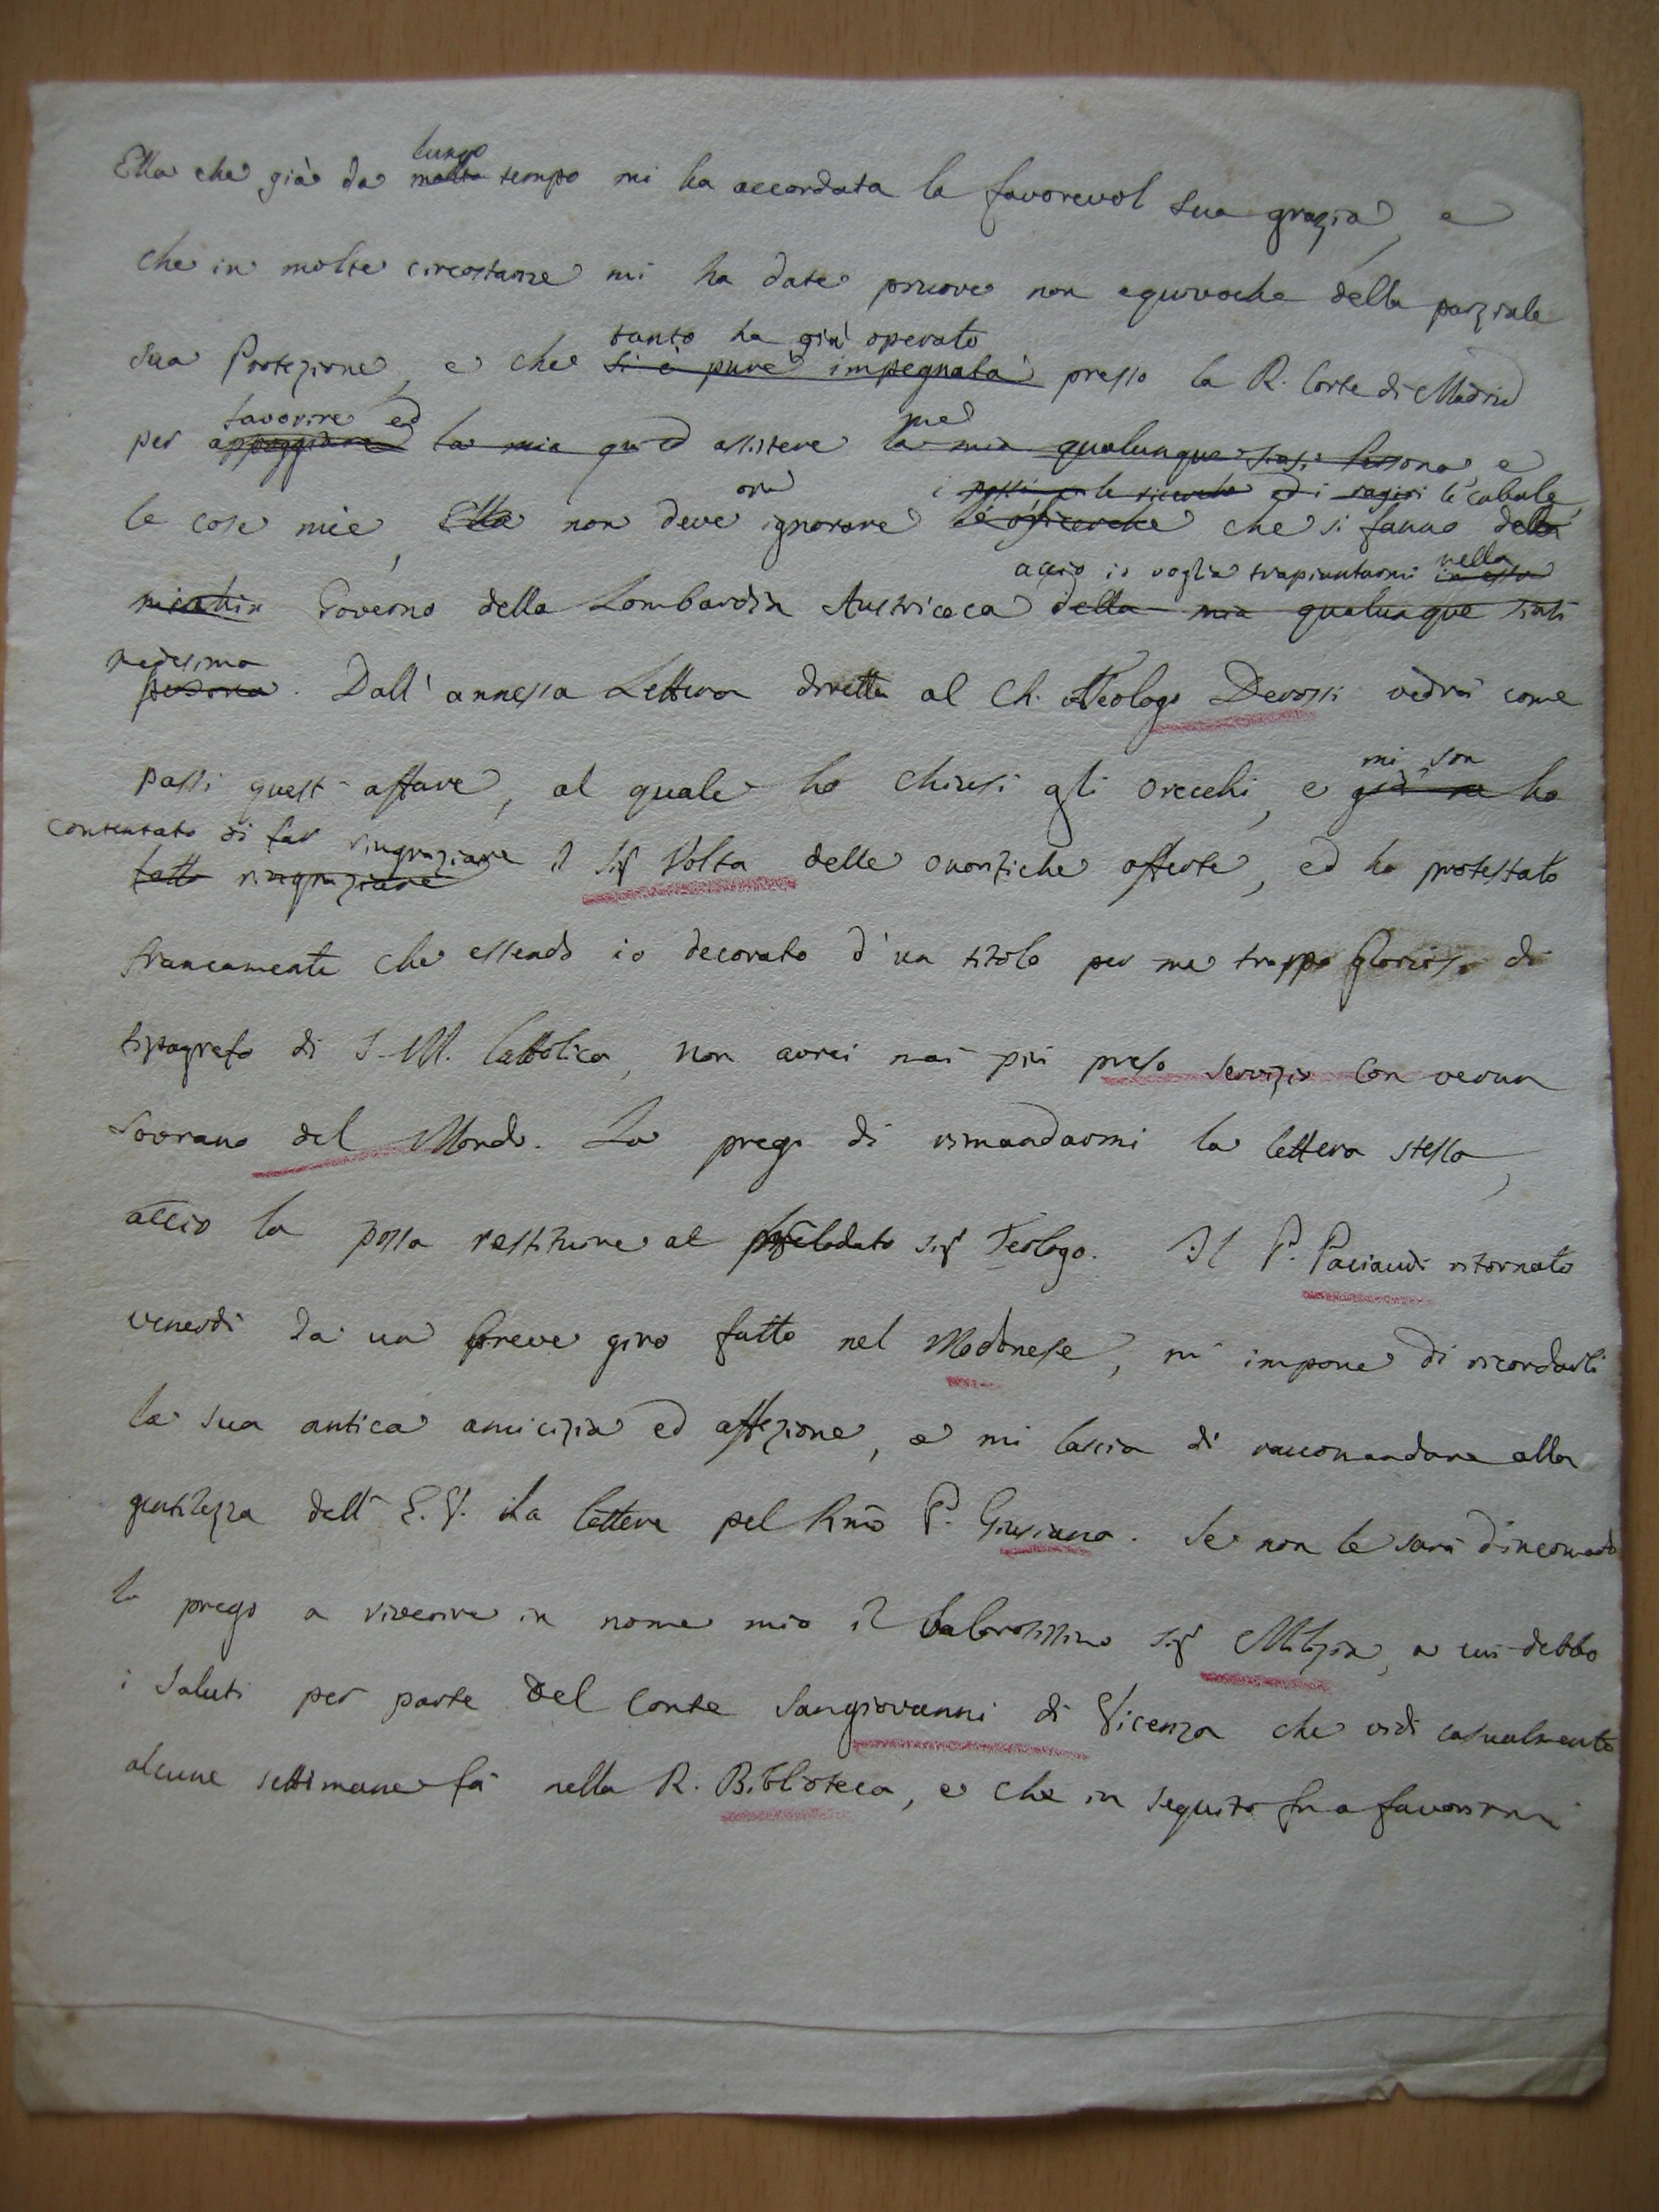 lungo
Ella che già da molto tempo mi ha accordata la favorevol sua grazia, e
che in molte circostanze mi ha date pruove non equivoche della parziale
tanto ha già operato
sua Protezione, e che si è pure impegnata presso la R. Corte di Madrid
favorire ed me
per appoggiare la mia qu ed assistere la mia qualunque siasi Persona e
ora i passi, e le ricerche ed i le cabale
le cose mie, Ella non deve ignorare le ricerche che si fanno dalla
acciò io voglia trapiantarmi nella in essa
Governo della Lombardia Austriaca della mia qualunque siasi
medesima
persona. Dall' annessa Lettera diretta al Ch. Teologo Derossi vedrà come
mi son
passi quest' affare, al quale ho chiusi gli orecchi, e già ne ho
contentato di far ringraziare
fatto ringraziare il Sigr Volta delle onorifiche offerte, ed ho protestato
francamente che essendo io decorato d'un titolo per me troppo glorioso di
tipografo di S. M. Cattolica, non avrei mai più preso servizio con verun
Sovrano del Mondo. La prego di rimandarmi la lettera stessa,
acciò la possa restituire al prelodato Sigr Teologo. Il P. Paciaudi ritornato
venerdì da un breve giro fatto nel Modonese, mi impone di ricordarli
la sua antica amicizia ed affezione, e mi lascia di raccomandare alla
gentilezza dell' E. V. la lettera pel Rmo P. Giusiana. Se non le sarà d'incomodo
la prego a riverire in nome mio il valorosissimo Sigr Milizia, a cui debbo
i saluti per parte del Conte Sangiovanni di Vicenza che vidi casualmente
alcune settimane fà nella R. Biblioteca, e che in seguito fu a favorirmi